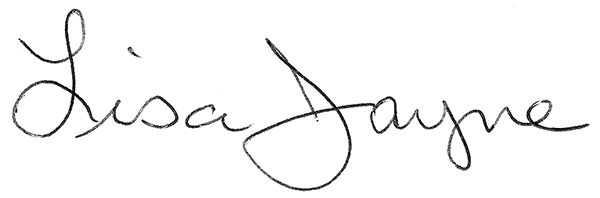 Lisa Jayne